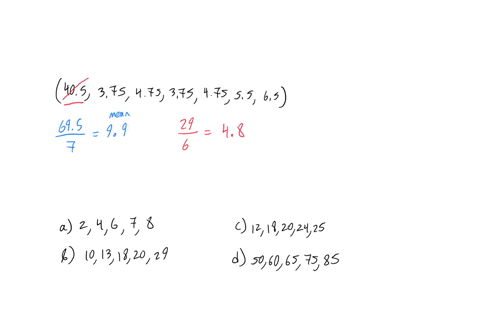 (40.5, 3.75, 4.75, 3.75, 4.75, 5.5, 6.5)
mean
69.5/7 = 9.9 29/6 = 4.8
a) 2, 4, 6, 7, 8 c) 12, 18, 20, 24, 25
b) 10, 13, 18, 20, 29 d) 50, 60, 65, 75, 85